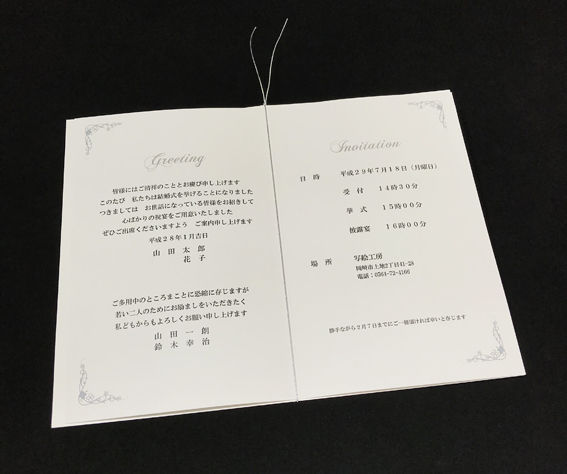 Greeting
皆様にはご清祥のこととお慶び申し上げます
このたび 私たちは結婚式を挙げることになりました
つきましては お世話になっている皆様をお招きして
心ばかりの祝宴をご用意いたしました
ぜひご出席くださいますよう ご案内申し上げます
平成28年1月吉日
山田 太郎
花子
ご多用中のところまことに恐縮に存じますが
若い二人のためにお励ましをいただきたく
私どもからもよろしくお願い申し上げます
山田 一朗
鈴木 幸治
Invitation
日時 平成29年7月18日(月曜日)
受付 14時30分
挙式 15時00分
披露宴 16時00分
場所 写絵工房
岡崎市上地2丁目41-28
電話:0564-72-4166
勝手ながら2月7日までにご一報賜ければ幸いと存じます